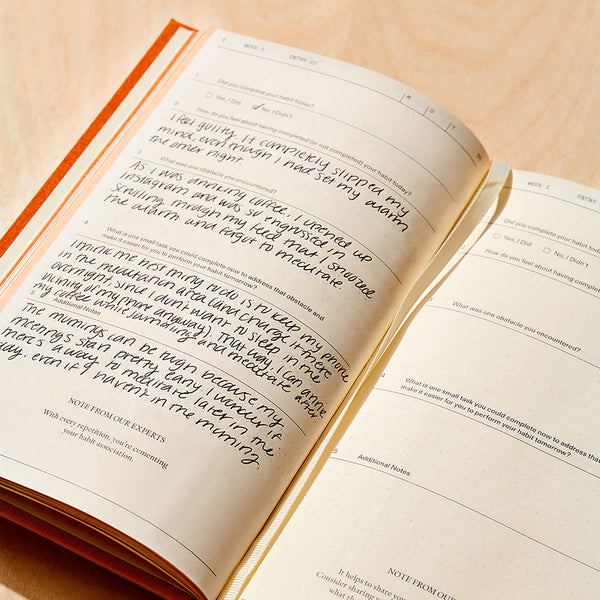 WEEK 1 ENTRY 02
M D Y
1 Did you complete your habit today?
Yes, I Did ✓ No, I Didn't
2 How do you feel about having completed (or not completed) your habit today?
I feel guilty. It completely slipped my
mind, even though I had set my alarm
the other night.
3 What was one obstacle you encountered?
As I was drinking coffee, I opened up
Instagram and was so engrossed in
scrolling through my feed that I snoozed
the alarm and forgot to meditate.
4 What is one small task you could complete now to address that obstacle and
make it easier for you to perform your habit tomorrow?
I think the best thing to do is to keep my phone
in the meditation area (and charge it there
overnight, since I don't want to sleep in the
vicinity of my phone anyway). That way, I can drink
my coffee while journaling and meditate after.
5 Additional Notes
The mornings can be tough because my
meetings start pretty early. I wonder if
there's a way to meditate later in the
day, even if I haven't in the morning.
NOTE FROM OUR EXPERTS
With every repetition, you're cementing
your habit association.
WEEK 1 ENTRY
Did you complete your habit today?
Yes, I Did No, I Didn't
How do you feel about having completed
What was one obstacle you encountered?
4 What is one small task you could complete now to address that
make it easier for you to perform your habit tomorrow?
5 Additional Notes
NOTE FROM OUR
It helps to share your
Consider sharing
what